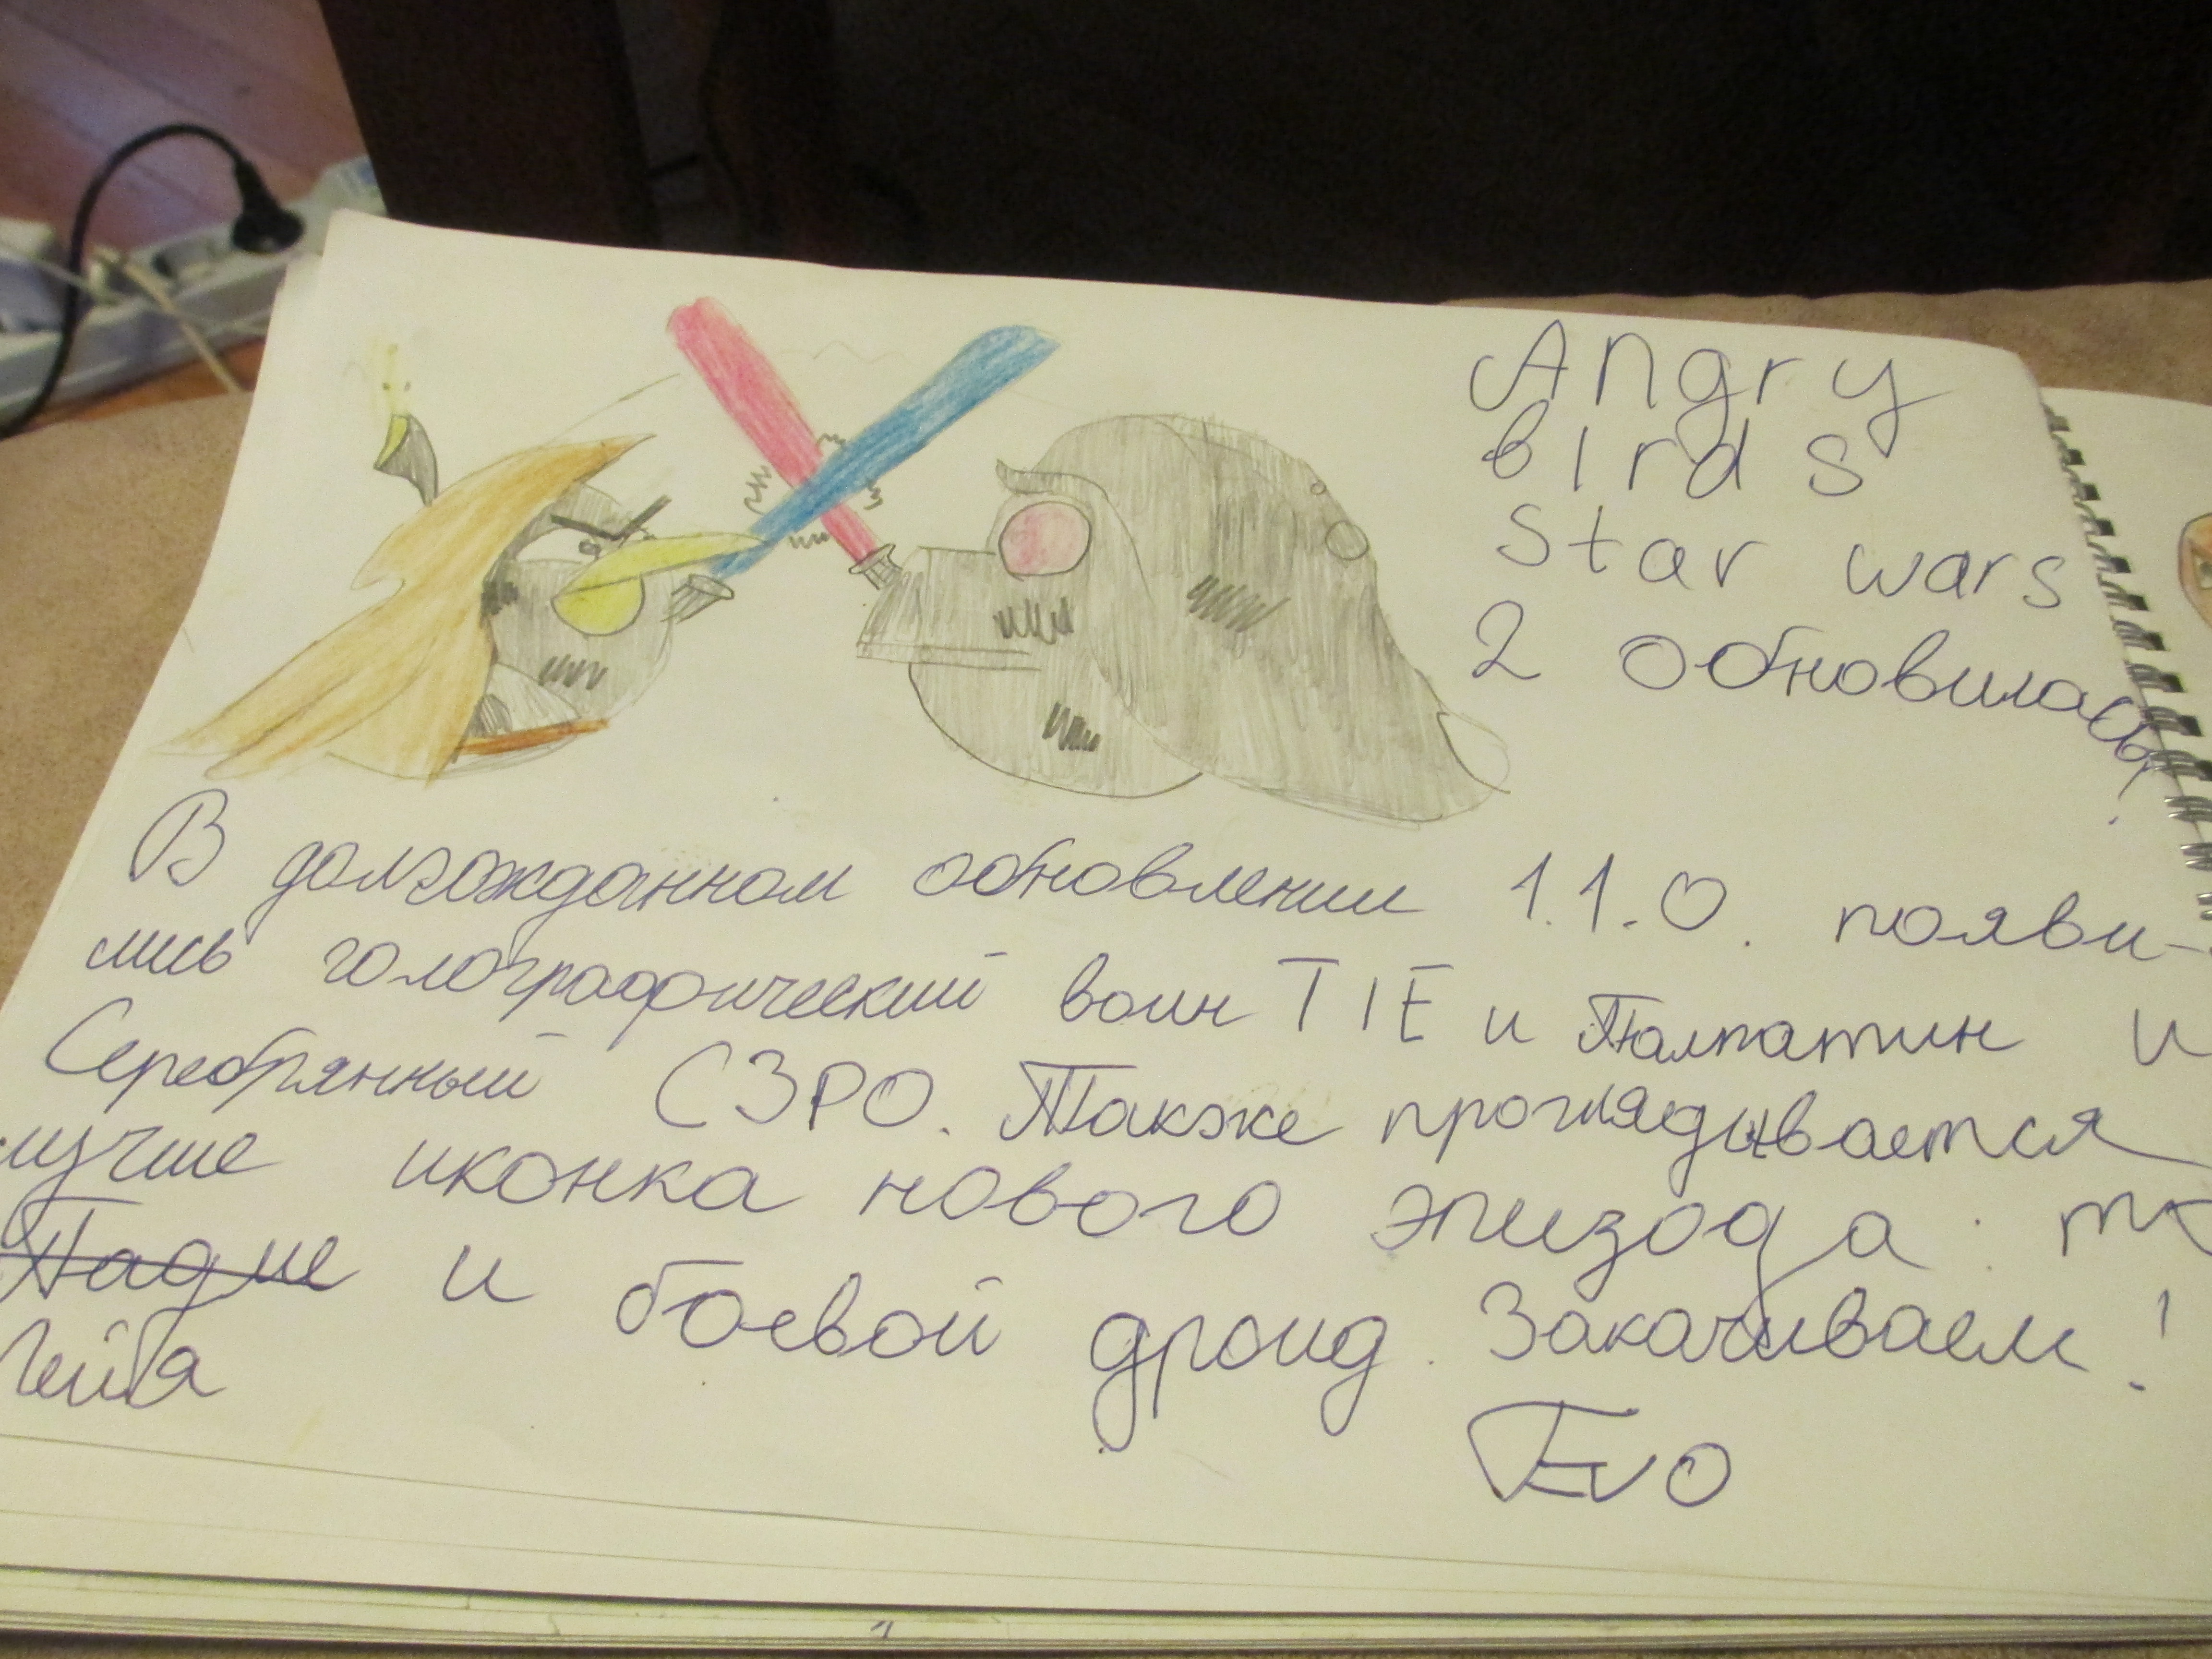 Angry
birds
star wars
2 обновилась!
В долгожданном обновлении 1.1.0. появи-
лись голографический воин TIE и Палпатин и
Серебрянный C3PO. Также проглядывается
лучше иконка нового эпизода:
Падме и боевой дроид. Закачиваем!
Лейя
Evo